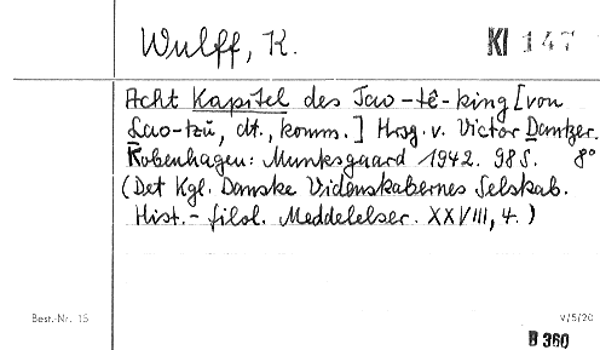 Wulff, K.
Kl 147
Acht Kapitel des Tao-tê-king [von
Lao-tzŭ, dt., komm.] Hrsg. v. Victor Dantzer.
Kobenhagen: Munksgaard 1942. 98 S. 8°
(Det Kgl. Danske Videnskabernes Selskab.
Hist.-filol. Meddelelser. XXVIII, 4.)
Best.-Nr. 15
V/5/20
B 360